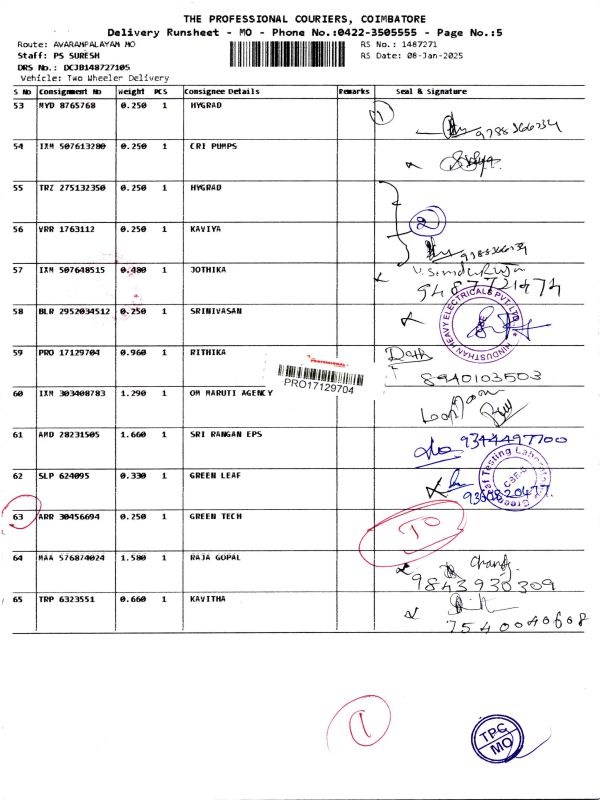 THE PROFESSIONAL COURIERS, COIMBATORE
Delivery Runsheet - MO - Phone No.:0422-3505555 - Page No.:5
Route: AVARAMPALAYAM MO RS No.: 1487271
Staff: PS SURESH RS Date: 08-Jan-2025
DRS No.: DCJB148727105
Vehicle: Two Wheeler Delivery
S No Consignment No Weight PCS Consignee Details Remarks Seal & Signature
53 MYD 8765768 0.250 1 HYGRAD 1
54 IXM 507613280 0.250 1 CRI PUMPS
55 TRZ 275132350 0.250 1 HYGRAD
56 VRR 1763112 0.250 1 KAVIYA 2
57 IXM 507648515 0.480 1 JOTHIKA
9487721474
58 BLR 2952034512 0.250 1 SRINIVASAN
HINDUSTHAN HEAVY ELECTRICALS PVT. LTD
CBE
59 PRO 17129704 0.960 1 RITHIKA
PRO17129704
8940103503
60 IXM 303408783 1.290 1 OM MARUTI AGENCY
61 AMD 28231505 1.660 1 SRI RANGAN EPS 9344497700
62 SLP 624095 0.330 1 GREEN LEAF
63 ARR 30456694 0.250 1 GREEN TECH
64 MAA 576874024 1.580 1 RAJA GOPAL
9843930309
65 TRP 6323551 0.660 1 KAVITHA
7540040608
1
TPC
MO